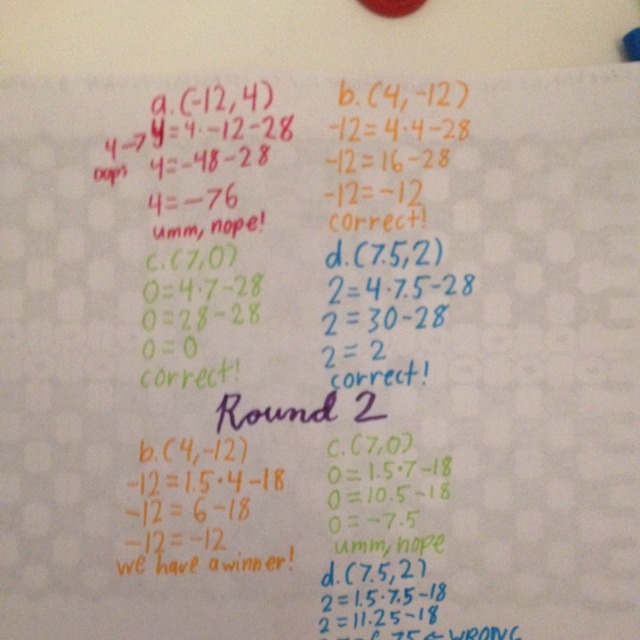 a. (-12, 4)
4→ y = 4 · -12 - 28
oops 4 = -48 - 28
4 = -76
umm, nope!
b. (4, -12)
-12 = 4 · 4 - 28
-12 = 16 - 28
-12 = -12
correct!
c. (7, 0)
0 = 4 · 7 - 28
0 = 28 - 28
0 = 0
correct!
d. (7.5, 2)
2 = 4 · 7.5 - 28
2 = 30 - 28
2 = 2
correct!
Round 2
b. (4, -12)
-12 = 1.5 · 4 - 18
-12 = 6 - 18
-12 = -12
we have a winner!
c. (7, 0)
0 = 1.5 · 7 - 18
0 = 10.5 - 18
0 = -7.5
umm, nope
d. (7.5, 2)
2 = 1.5 · 7.5 - 18
2 = 11.25 - 18
WRONG